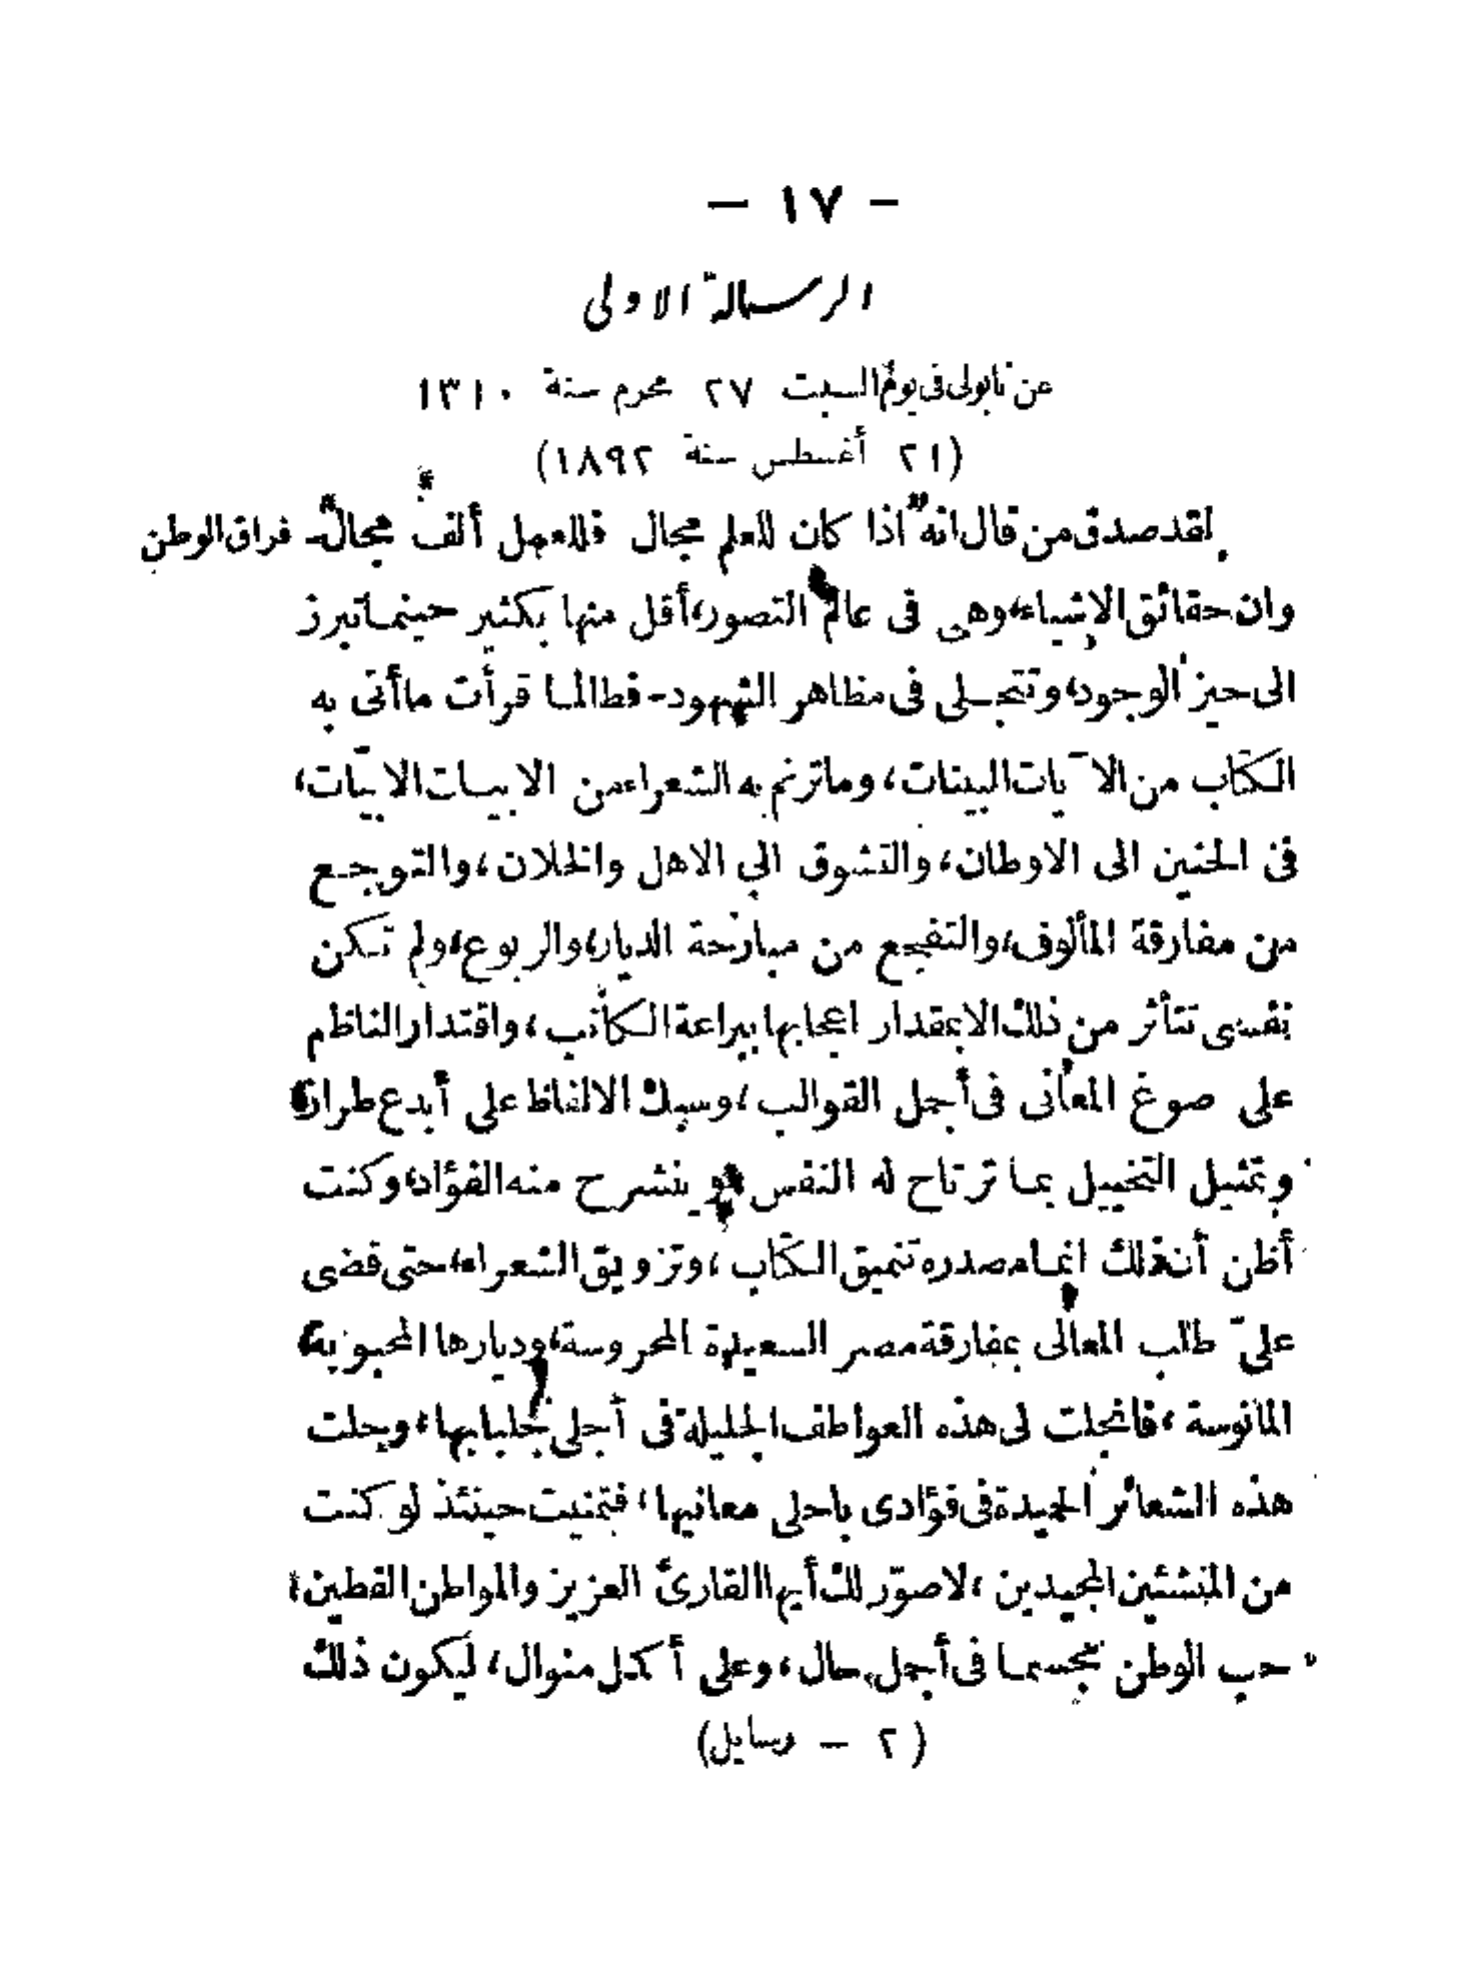 — ١٧ —
الرسالة الاولى
عن نابولى فى يوم السبت ٢٧ محرم سنة ١٣١٠
(٢١ أغسطس سنة ١٨٩٢)
لقد صدق من قال انه "اذا كان للعلم مجال فللعمل ألف مجال"ـ فراق الوطن
وان حقائق الاشياء، وهى فى عالم التصور، أقل منها بكثير حينما تبرز
الى حيز الوجود، وتتجلى فى مظاهر الشهود ـ فطالما قرأت ما أتى به
الكتّاب من الآيات البينات، وما ترنم به الشعراء من الابيات الابيّات،
فى الحنين الى الاوطان، والتشوق الى الاهل والخلان، والتوجع
من مفارقة المألوف، والتفجع من مبارحة الديار، والربوع، ولم تكن
نفسى تتأثر من ذلك الا بمقدار اعجابها ببراعة الكاتب، واقتدار الناظم
على صوغ المعانى فى أجمل القوالب، وسبك الالفاظ على أبدع طراز،
وتمثيل التخييل بما ترتاح له النفس، وينشرح منه الفؤاد، وكنت
أظن أن ذلك انما مصدره تنميق الكتّاب، وتزويق الشعراء، حتى قضى
علىّ طلب المعالى بمفارقة مصر السعيدة المحروسة، وديارها المحبوبة،
المانوسة، فانجلت لى هذه العواطف الجليلة فى أجلى تجليابها، وحلت
هذه الشعائر الحميدة فى فؤادى باحلى معانيها، فتمنيت حينئذ لو كنت
من المنشئين المجيدين، لاصوّر لك أيها القارئ العزيز والمواطن الفطين،
حب الوطن مجسما فى أجمل حال، وعلى أكمل منوال، ليكون ذلك
(٢ — رسايل)